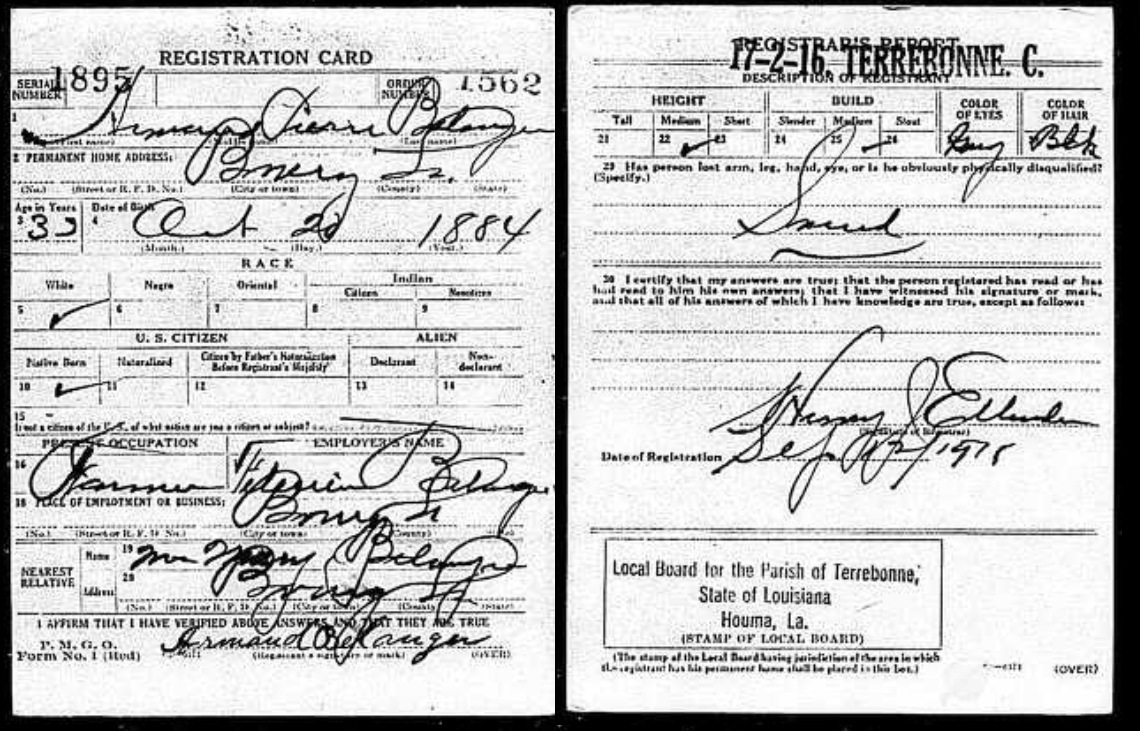 REGISTRATION CARD
SERIAL NUMBER 1895 ORDER NUMBER 1562
1 Armand Pierre Belanger
(First name) (Middle name) (Last name)
2 PERMANENT HOME ADDRESS:
Bourg La.
(No.) (Street or R. F. D. No.) (City or town) (County) (State)
Age in Years Date of Birth
3 33 4 Oct 20 1884
(Month.) (Day.) (Year.)
RACE
White Negro Oriental Indian
Citizen Noncitizen
5 6 7 8 9
U. S. CITIZEN ALIEN
Native Born Naturalized Citizen by Father's Naturalization Before Registrant's Majority Declarant Non-declarant
10 11 12 13 14
15
If not a citizen of the U. S., of what nation are you a citizen or subject?
PRESENT OCCUPATION EMPLOYER'S NAME
16 Farmer Belanger
18 PLACE OF EMPLOYMENT OR BUSINESS:
Bourg La
(No.) (Street or R. F. D. No.) (City or town) (County) (State)
NEAREST RELATIVE
Name 19 Belanger
Address 20 Bourg La
(No.) (Street or R. F. D. No.) (City or town) (County) (State)
I AFFIRM THAT I HAVE VERIFIED ABOVE ANSWERS AND THAT THEY ARE TRUE
P. M. G. O.
Form No. 1 (Red) Armand Belanger
(Registrant's signature or mark) (OVER)
REGISTRAR'S REPORT
17-2-16 TERREBONNE. C.
DESCRIPTION OF REGISTRANT
HEIGHT BUILD COLOR OF EYES COLOR OF HAIR
Tall Medium Short Slender Medium Stout
21 22 23 24 25 26 Grey Blk
29 Has person lost arm, leg, hand, eye, or is he obviously physically disqualified?
(Specify.)
Sound
30 I certify that my answers are true; that the person registered has read or has
had read to him his own answers; that I have witnessed his signature or mark,
and that all of his answers of which I have knowledge are true, except as follows:
J Ellender
(Signature of Registrar)
Date of Registration Sep 12/1918
Local Board for the Parish of Terrebonne,
State of Louisiana
Houma, La.
(STAMP OF LOCAL BOARD)
(The stamp of the Local Board having jurisdiction of the area in which
the registrant has his permanent home shall be placed in this box.)
(OVER)